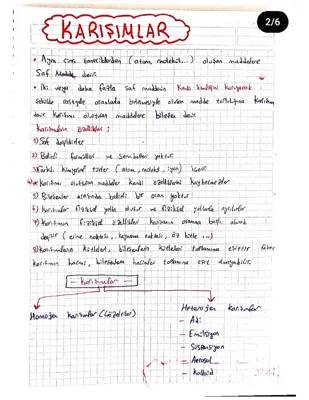 KARIŞIMLAR
2/6
• Aynı cins taneciklerden (atom, molekül...) oluşan maddelere
Saf Madde denir.
• İki veya daha fazla saf maddenin kendi özelliğini koruyarak
şekilde rastgele oranlarda birleşmesiyle oluşan madde topluluğuna Karışım
denir. Karışımı oluşturan maddelere bileşen denir.
Karışımların özellikleri:
1) Saf değillerdir
2) Belirli formülleri ve sembolleri yoktur.
3) Farklı kimyasal türler (atom, molekül, iyon) içerir
4) Karışımı oluşturan maddeler kendi özelliklerini kaybetmezler
5) Bileşenler arasında belirli bir oran yoktur.
6) Karışımlar fiziksel yolla oluşur ve fiziksel yollarla ayrılırlar.
7) Karışımın fiziksel özellikleri karışımın oranına bağlı olarak
değişir (erime noktası, kaynama noktası, öz kütle ...)
8) Karışımların kütleleri, bileşenlerin kütleleri toplamına eşittir fakat
karışımın hacmi, bileşenlerin hacimleri toplamına eşit olmayabilir.
— Karışımlar —
Homojen Karışımlar (Çözeltiler)
Heterojen Karışımlar
— Adi
— Emülsiyon
— Süspansiyon
— Aerosol
— Kolloid